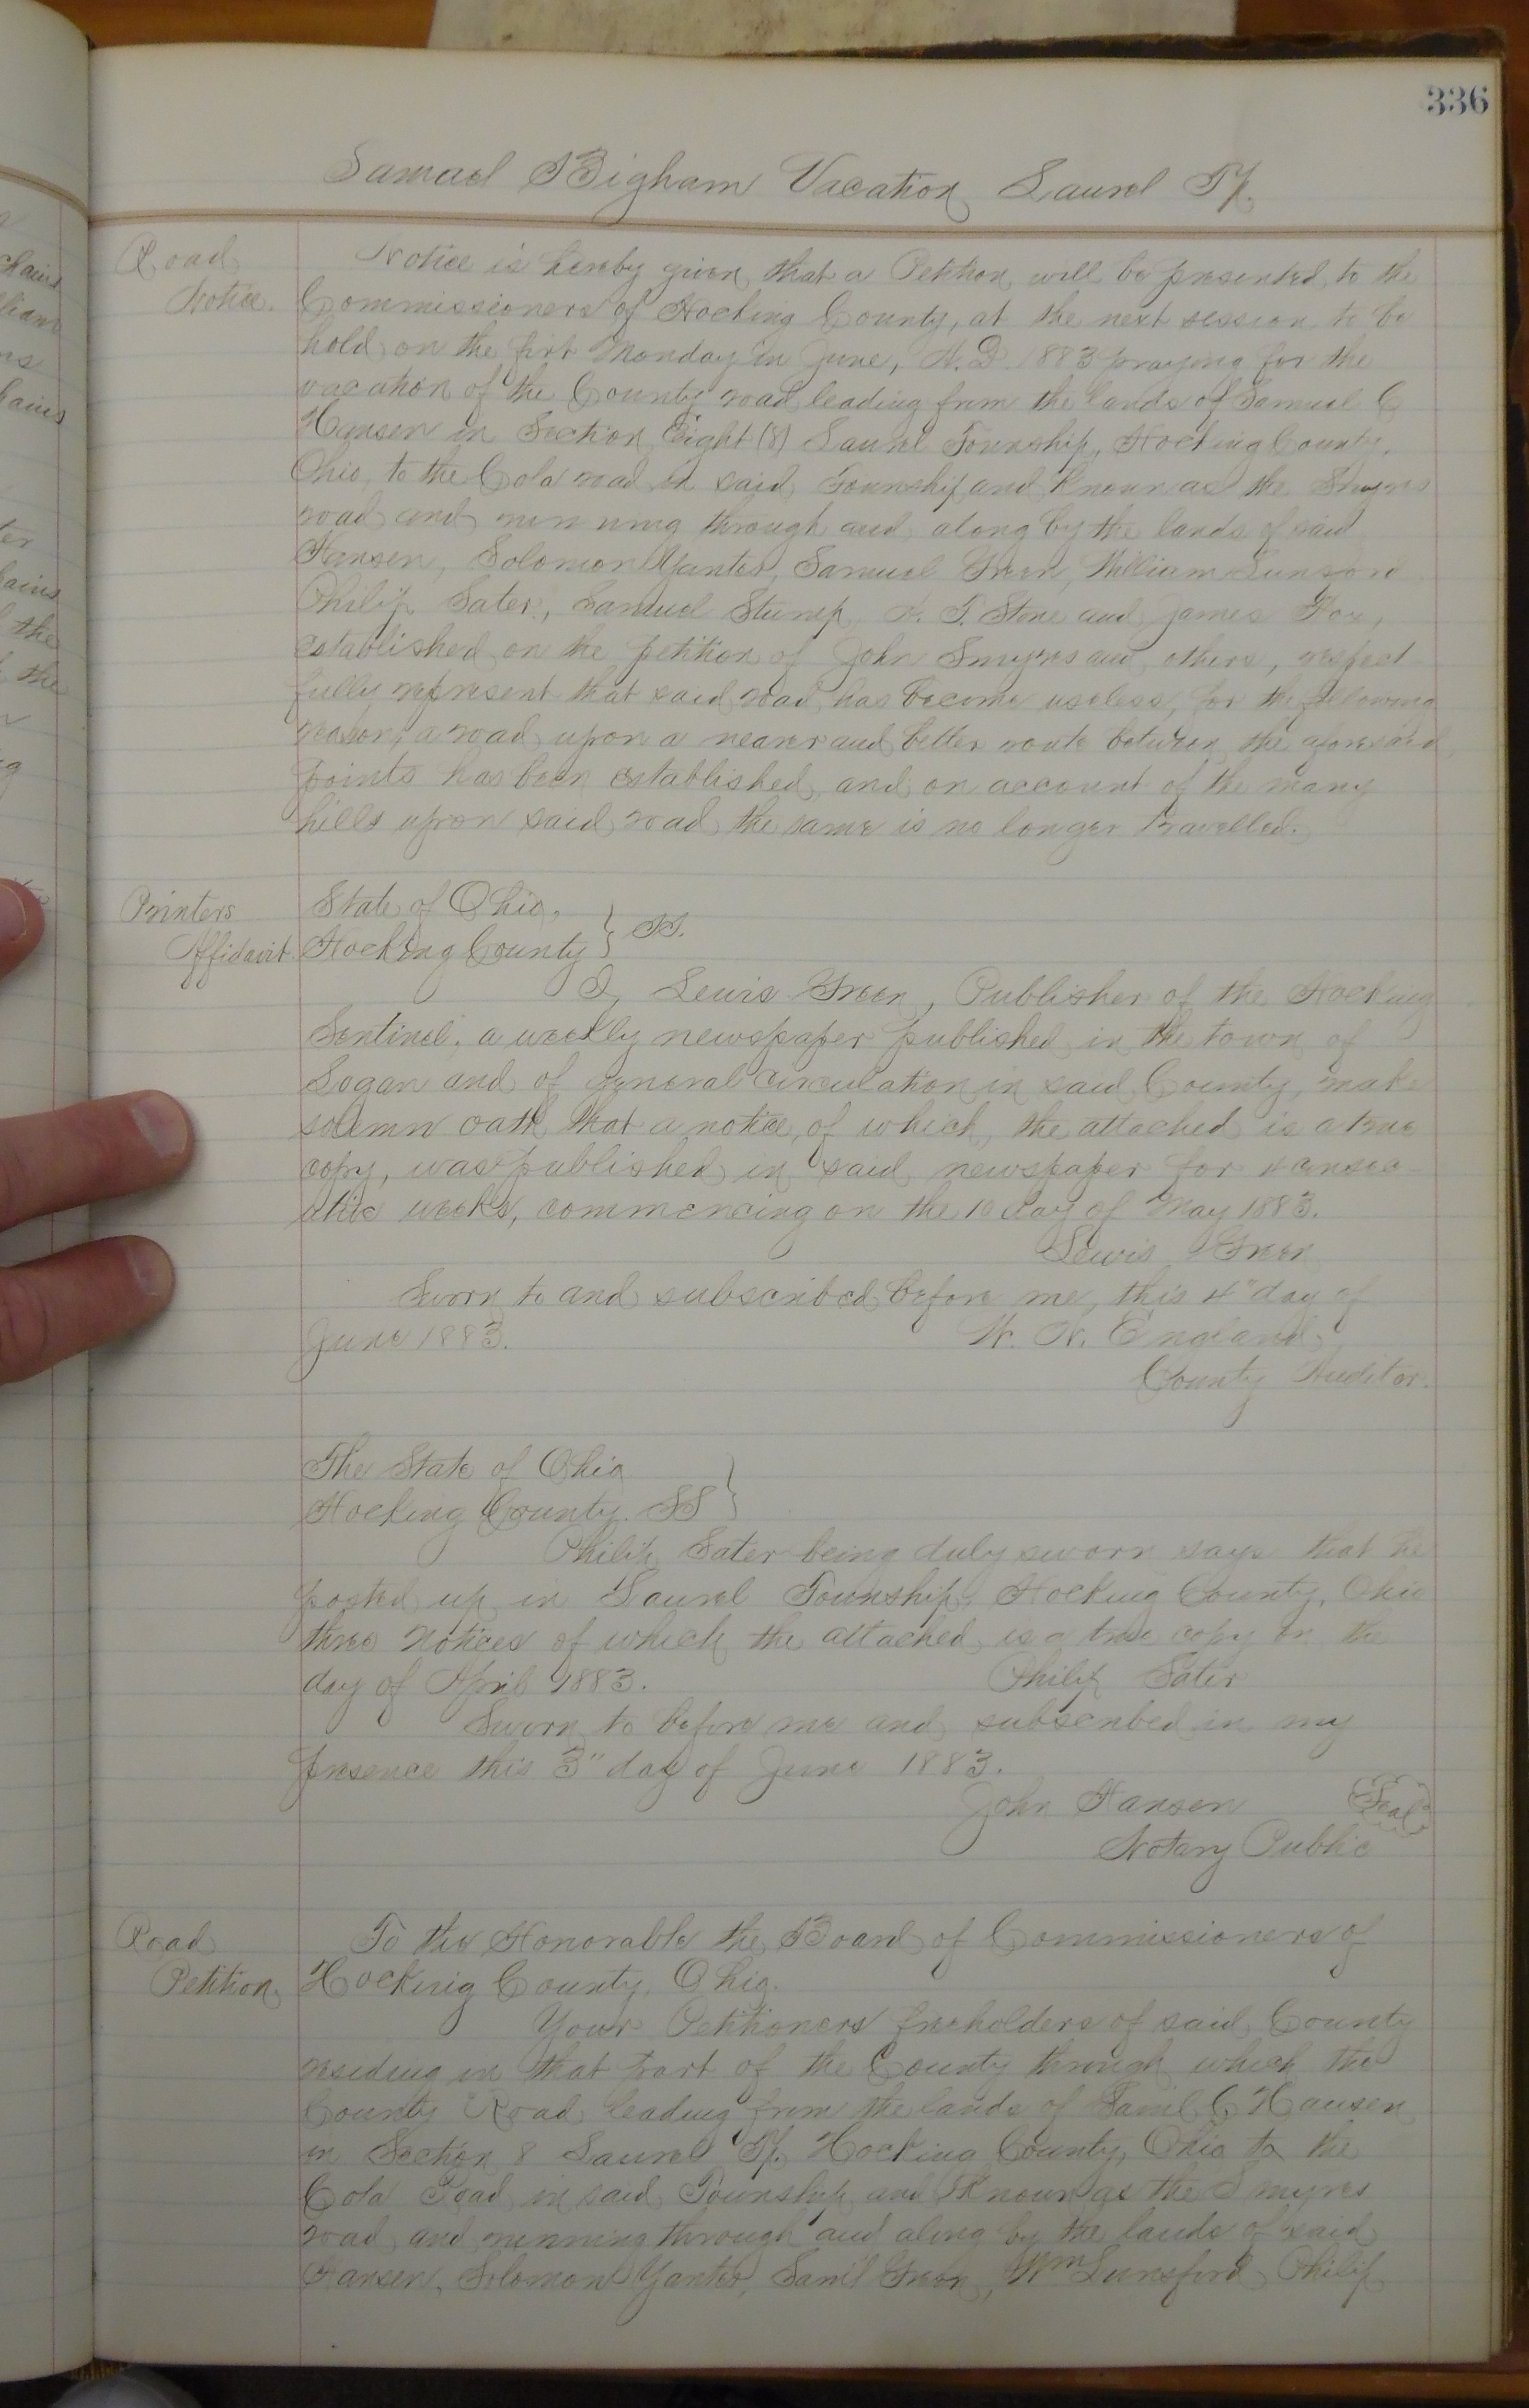 336
Samuel Bigham Vacation Laurel Tp.
Road Notice.
Notice is hereby given that a Petition will be presented to the
Commissioners of Hocking County, at the next session to be
hold on the first Monday in June, A.D. 1883 praying for the
vacation of the County road leading from the lands of Samuel C
Hansen in Section Eight (8) Laurel Township, Hocking County,
Ohio, to the Cola road in said Township and known as the Smyres
road and running through and along by the lands of said
Hansen, Solomon Yantes, Samuel Green, William Lunsford
Philip Sater, Samuel Stump, T. Stone and James Fox,
established on the petition of John Smyres and others, respect
fully represent that said road has become useless, for the following
reason, a road upon a nearer and better route between the aforesaid
points has been established, and on account of the many
hills upon said road the same is no longer travelled.
Printers Affidavit.
State of Ohio,
Hocking County } SS.
I, Lewis Green, Publisher of the Hocking
Sentinel, a weekly newspaper published in the town of
Logan and of general circulation in said County, make
solemn oath that a notice, of which the attached is a true
copy, was published in said newspaper for 4 consec
utive weeks, commencing on the 10 day of May 1883.
Lewis Green
Sworn to and subscribed before me, this 4" day of
June 1883. W. W. England
County Auditor.
The State of Ohio
Hocking County SS }
Philip Sater being duly sworn says that he
posted up in Laurel Township, Hocking County, Ohio
three notices of which the attached is a true copy on the
day of April 1883. Philip Sater
Sworn to before me and subscribed in my
presence this 3" day of June 1883.
John Hansen Seal
Notary Public
Road Petition.
To the Honorable the Board of Commissioners of
Hocking County, Ohio.
Your Petitioners freeholders of said County
residing in that part of the County through which the
County Road leading from the lands of Saml C Hansen
in Section 8 Laurel Tp. Hocking County, Ohio to the
Cola Road in said Township and Known as the Smyres
road and running through and along by the lands of said
Hansen, Solomon Yantes, Saml Green, Wm Lunsford, Philip